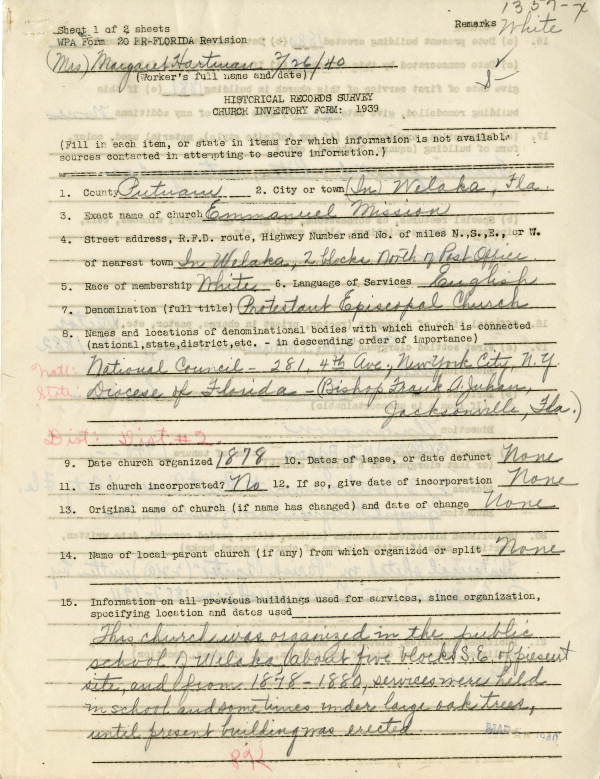 1357-X
Sheet 1 of 2 sheets Remarks White
WPA Form 20 HR-FLORIDA Revision
(Mrs) Margaret Hartman 7/26/40
(Worker's full name and date)
HISTORICAL RECORDS SURVEY
CHURCH INVENTORY FORM: 1939
(Fill in each item, or state in items for which information is not available
sources contacted in attempting to secure information.)
1. County Putnam 2. City or town (In) Welaka, Fla.
3. Exact name of church Emmanuel Mission
4. Street address, R.F.D. route, Highway Number and No. of miles N.,S.,E., or W.
of nearest town In Welaka, 2 blocks North of Post Office
5. Race of membership White 6. Language of Services English
7. Denomination (full title) Protestant Episcopal Church
8. Names and locations of denominational bodies with which church is connected
(national,state,district,etc. - in descending order of importance)
Natl: National Council - 281, 4th Ave., New York City, N.Y.
State: Diocese of Florida - (Bishop Frank A. Juhan,
Jacksonville, Fla.)
Dist: Dist #2.
9. Date church organized 1878 10. Dates of lapse, or date defunct None
11. Is church incorporated? No 12. If so, give date of incorporation None
13. Original name of church (if name has changed) and date of change None
14. Name of local parent church (if any) from which organized or split None
15. Information on all previous buildings used for services, since organization,
specifying location and dates used
This church was organized in the public
school of Welaka (about five blocks S.E. of present
site, and from 1878-1880, services were held
in school and sometimes under large oak trees,
until present building was erected.